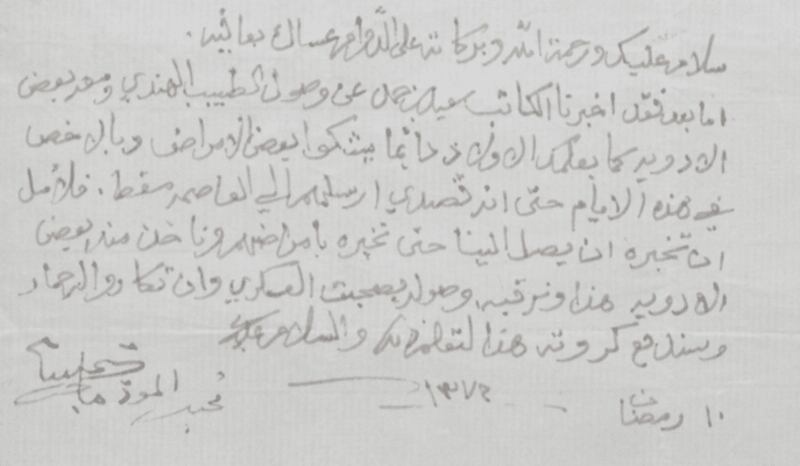 سلام عليك ورحمة الله وبركاته على الدوام عساك بعافيه.
اما بعد فقد اخبرنا الكاتب سعيد بن حمد عن وصول الطبيب الهندي ومعه بعض
الادويه كما بعلمك الاولاد دائما يشكوا بعض الامراض وبالاخص
في هذه الايام حتى انه قصدي ارسلهم الي العاصمه مسقط. فلأمل
ان تخبره ان يصل الينا حتى نخبره بامراضهم وناخذ منه بعض
الادويه هذا ونرقبه وصوله بصحبت العسكري وان تكاروا الحمار
وسندفع كروته هذا لتعلم به والسلام عليك
١٠ رمضان ١٣٧٢
المود
محبك